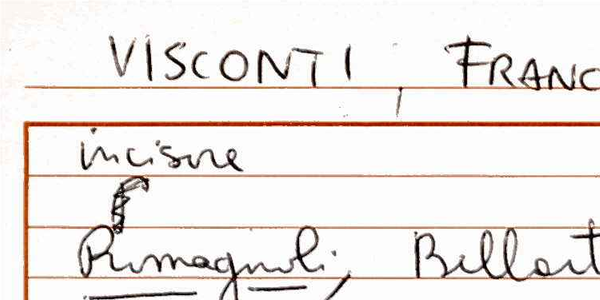 VISCONTI, FRANC
incisore
Romagnoli, Bellart